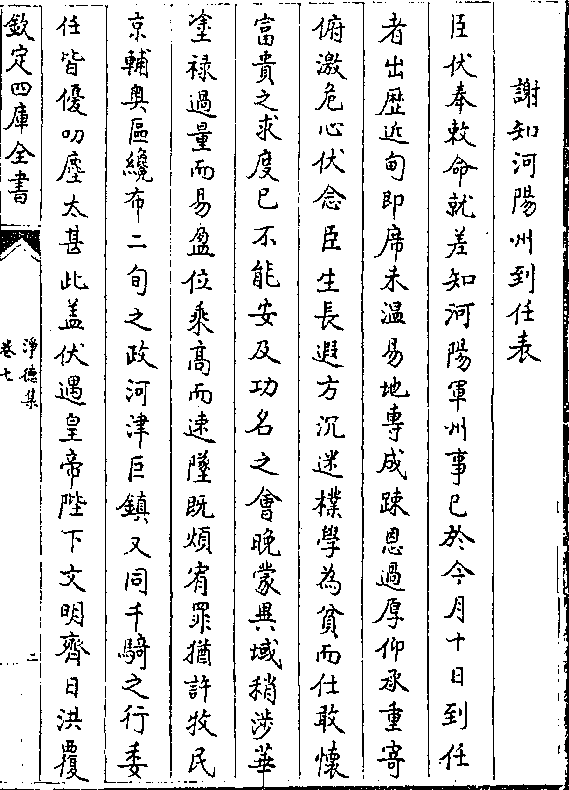 謝知河陽州到任表
臣伏奉敕命就差知河陽軍州事已於今月十日到任
者出歴近甸即席未温易地專成踈恩過厚仰承重寄
俯激危心伏念臣生長遐方沉迷樸學為貧而仕敢懷
富貴之求度已不能安及功名之會晚蒙異域稍涉華
塗禄過量而易盈位乘高而速墜既煩宥罪猶許牧民
京輔奥區纔布二旬之政河津巨鎮又同千騎之行委
任皆優叨塵太甚此盖伏遇皇帝陛下文明齊日洪覆
欽定四庫全書
淨德集
卷七
二